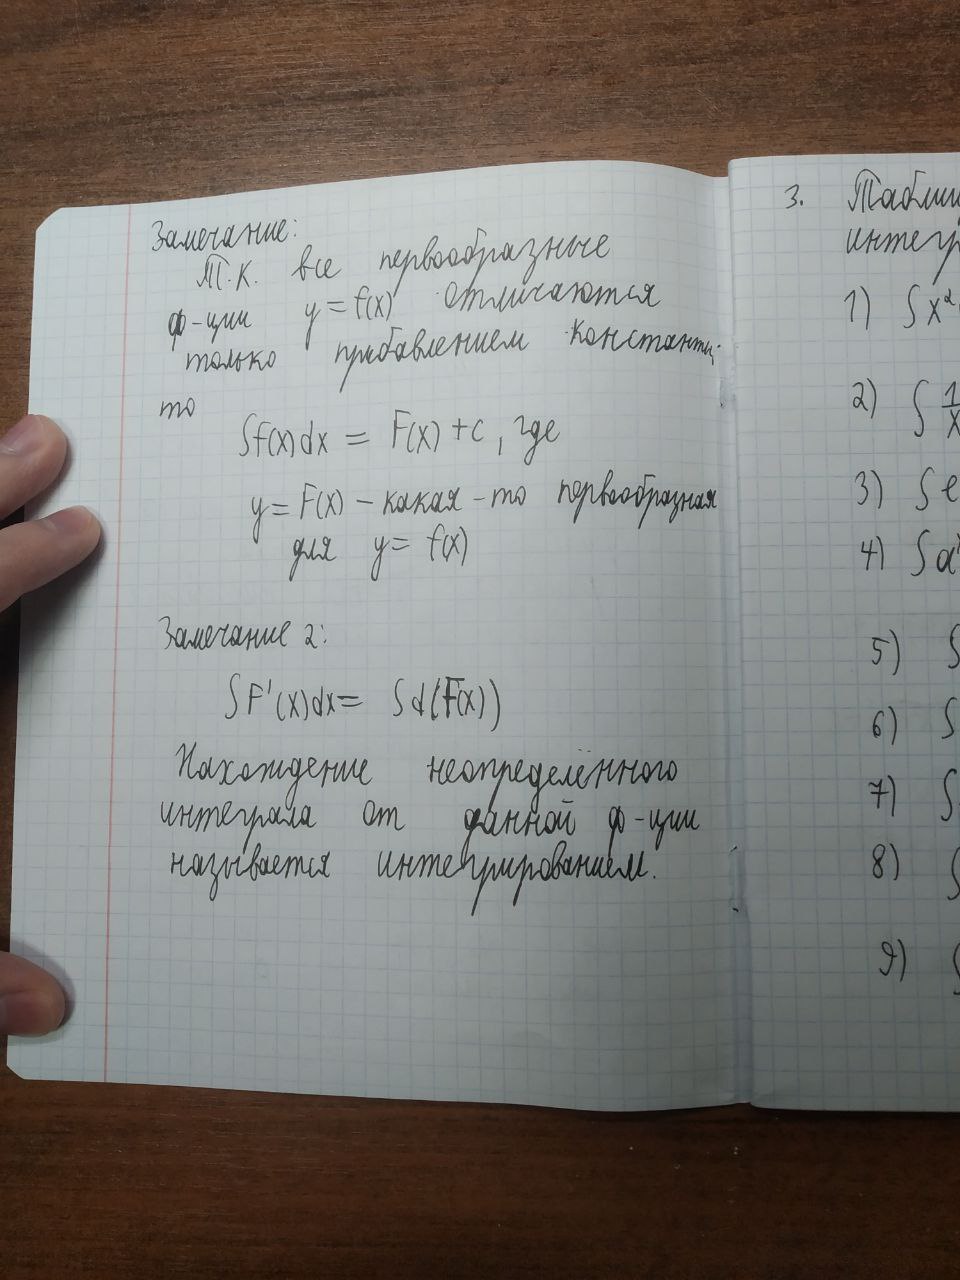 Замечание:
Т.К. все первообразные
ф-ции y = f(x) отличаются
только прибавлением константы,
то
∫f(x)dx = F(x) + c, где
y = F(x) – какая-то первообразная
для y = f(x)
Замечание 2:
∫F'(x)dx = ∫d(F(x))
Нахождение неопределённого
интеграла от данной ф-ции
называется интегрированием.
3.
1) ∫x
2) ∫1/x
3) ∫e
4) ∫a
5) ∫
6) ∫
7) ∫
8) ∫
9) ∫